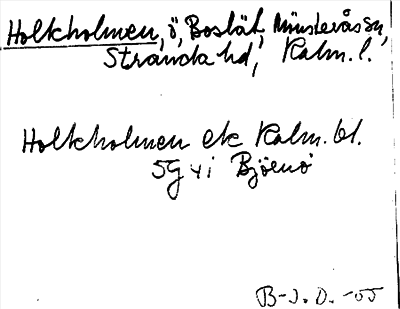 Holkholmen, ö, Boslät, Mönsterås sn,
Stranda hd, Kalm. l.
Holkholmen ek Kalm. bl.
5G y i Björnö
B-J. D. -55